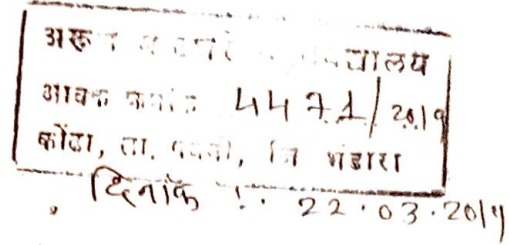 अरू
आवक क्रमांक 4471/2019
कोंढा, ता. पवनी, जि भंडारा
दिनांक :. 22.03.2019